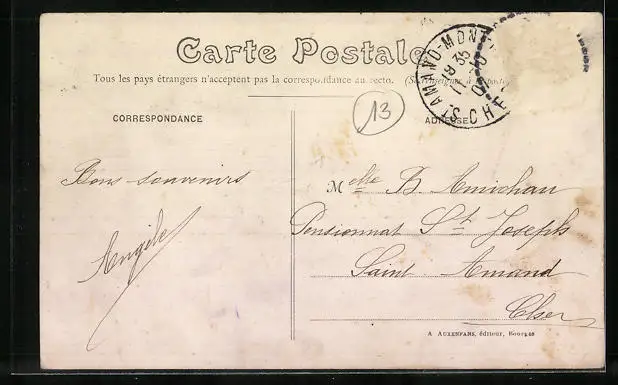 Carte Postale
Tous les pays étrangers n'acceptent pas la correspondance au recto. (Se renseigner à la poste)
ST AMAND-MONT
18 35
CHER
13
CORRESPONDANCE
ADRESSE
Bons souvenirs
Angèle
Melle B Amichau
Pensionnat St Joseph
Saint Amand
Cher
A AUXENFANS, éditeur, Bourges